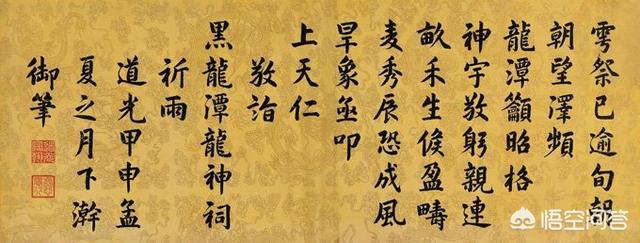 雩祭已逾旬朝
朝望澤頻
龍潭籲昭格
神宇敬躬親連
畝禾生候盈疇
麦秀辰恐成風
旱象亟叩
上天仁
敬詣
黑龍潭龍神祠
祈雨
道光甲申孟
夏之月下澣
御筆
悟空问答